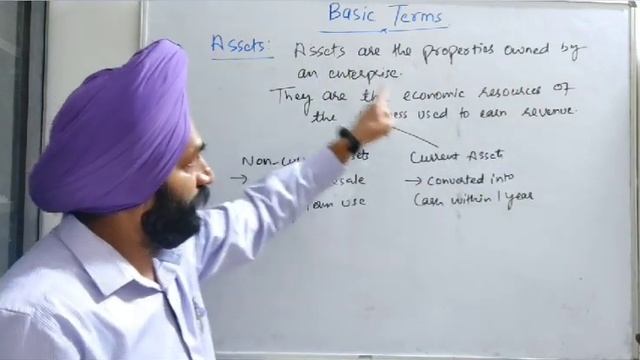 Basic Terms
Assets: Assets are the properties owned by
an enterprise.
They are the economic resources of
the used to earn revenue.
Current Assets
→ → Converted into
use Cash within 1 year